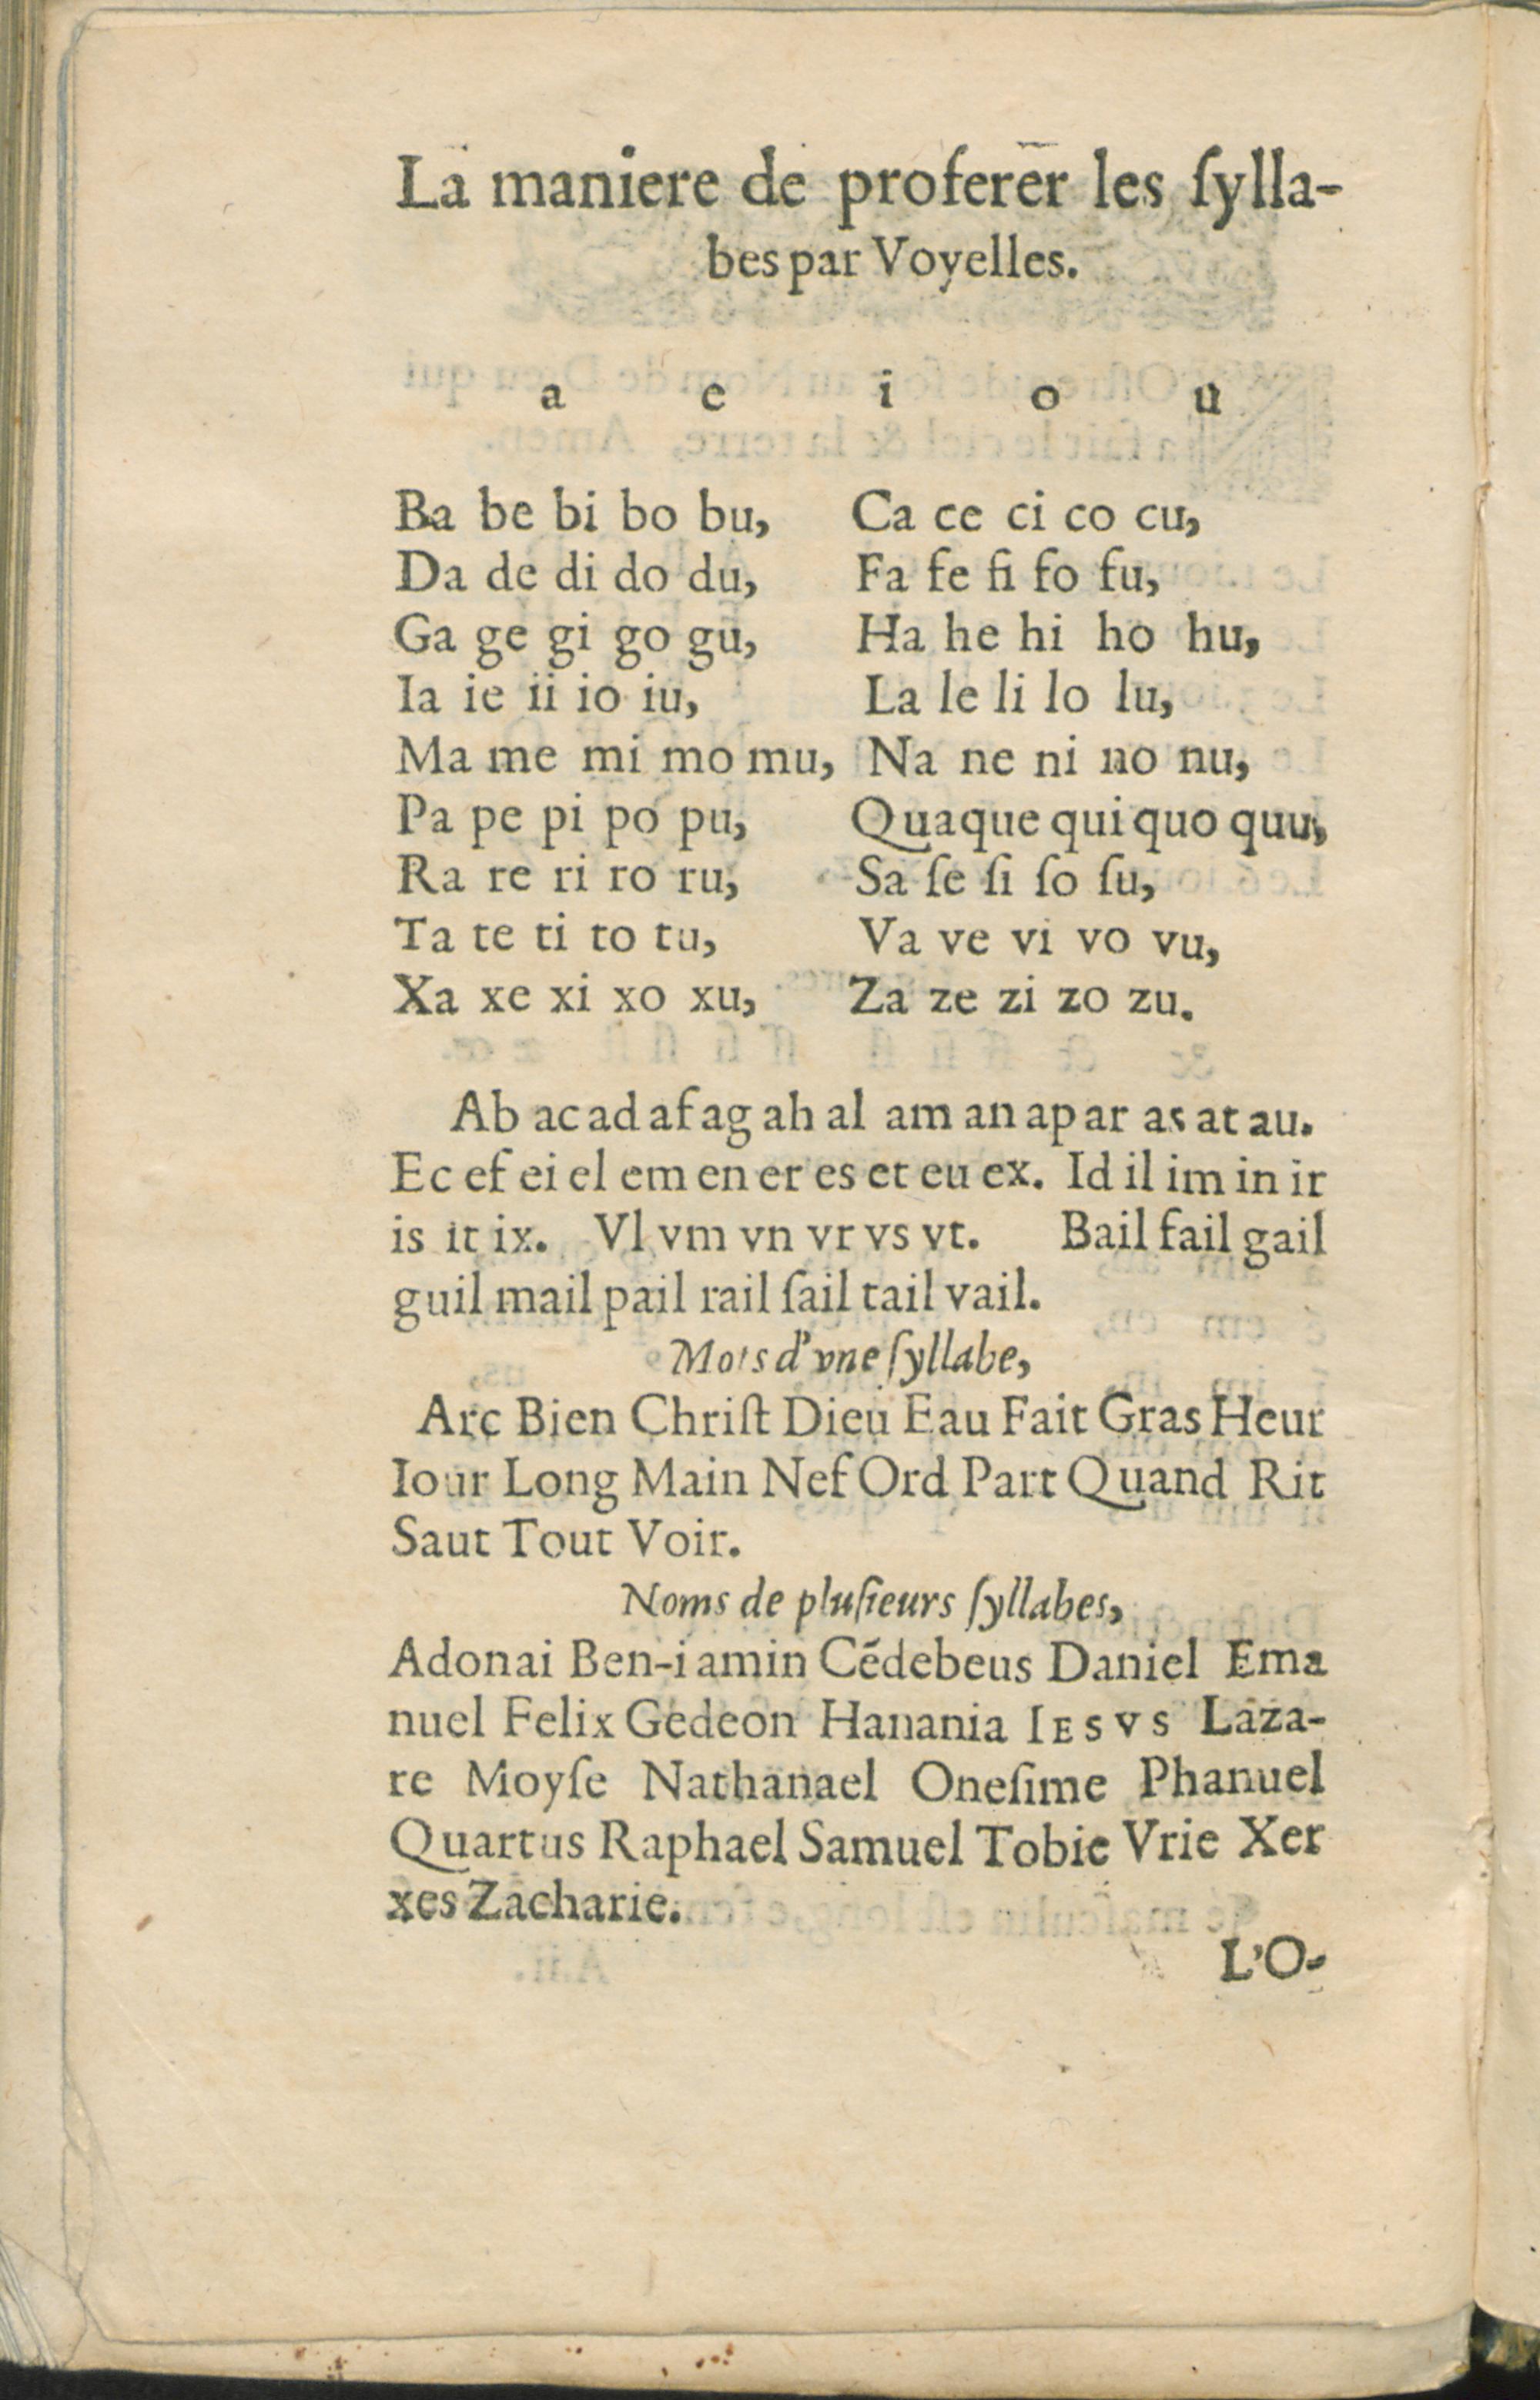 La maniere de proferer les ſylla-
bes par Voyelles.
a e i o u
Ba be bi bo bu, Ca ce ci co cu,
Da de di do du, Fa fe fi fo fu,
Ga ge gi go gu, Ha he hi ho hu,
Ia ie ii io iu, La le li lo lu,
Ma me mi mo mu, Na ne ni no nu,
Pa pe pi po pu, Qua que qui quo quu,
Ra re ri ro ru, Sa ſe ſi ſo ſu,
Ta te ti to tu, Va ve vi vo vu,
Xa xe xi xo xu, Za ze zi zo zu.
Ab ac ad af ag ah al am an ap ar as at au.
Ec ef ei el em en er es et eu ex. Id il im in ir
is it ix. Vl vm vn vr vs vt. Bail fail gail
guil mail pail rail ſail tail vail.
Mots d'vne ſyllabe,
Arc Bien Chriſt Dieu Eau Fait Gras Heur
Iour Long Main Nef Ord Part Quand Rit
Saut Tout Voir.
Noms de pluſieurs ſyllabes,
Adonai Ben-iamin Cédebeus Daniel Ema
nuel Felix Gedeon Hanania IESVS Laza-
re Moyſe Nathanael Oneſime Phanuel
Quartus Raphael Samuel Tobie Vrie Xer
xes Zacharie.
L'O-